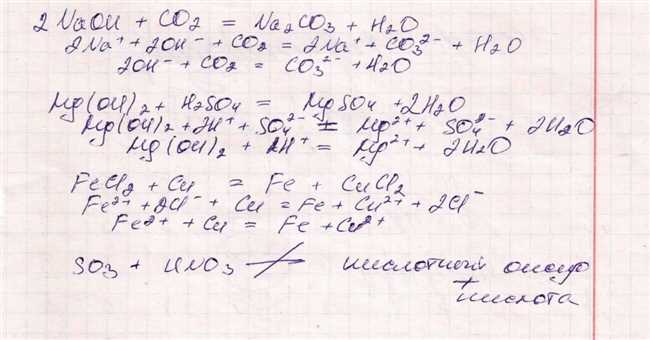 2NaOH + CO2 = Na2CO3 + H2O
2Na⁺ + 2OH⁻ + CO2 = 2Na⁺ + CO3²⁻ + H2O
2OH⁻ + CO2 = CO3²⁻ + H2O
Mg(OH)2 + H2SO4 = MgSO4 + 2H2O
Mg(OH)2 + 2H⁺ + SO4²⁻ = Mg²⁺ + SO4²⁻ + 2H2O
Mg(OH)2 + 2H⁺ = Mg²⁺ + 2H2O
FeCl2 + Cu = Fe + CuCl2
Fe²⁺ + 2Cl⁻ + Cu = Fe + Cu²⁺ + 2Cl⁻
Fe²⁺ + Cu = Fe + Cu²⁺
SO3 + HNO3 ≠ кислотный
+
кислота